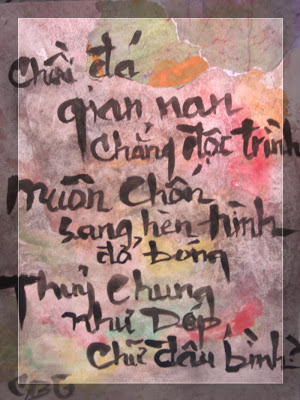 Chồi đá
gian nan
Chẳng độc trình
Muôn Chốn
sang hèn hình
đổ bóng
Thuỷ Chung
như Dép,
Chữ đâu bình?